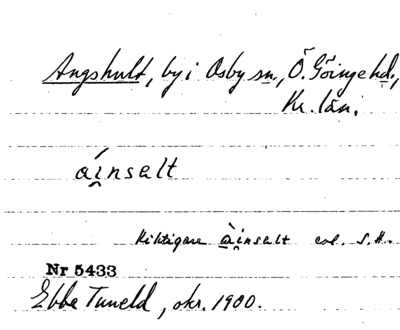 Angshult, by i Osby sn, Ö. Göinge hd.,
Kr. län.
ái̯nsalt
Riktigare ài̯nsalt enl. S.H.
Nr 5433
Ebbe Tuneld, okr. 1900.